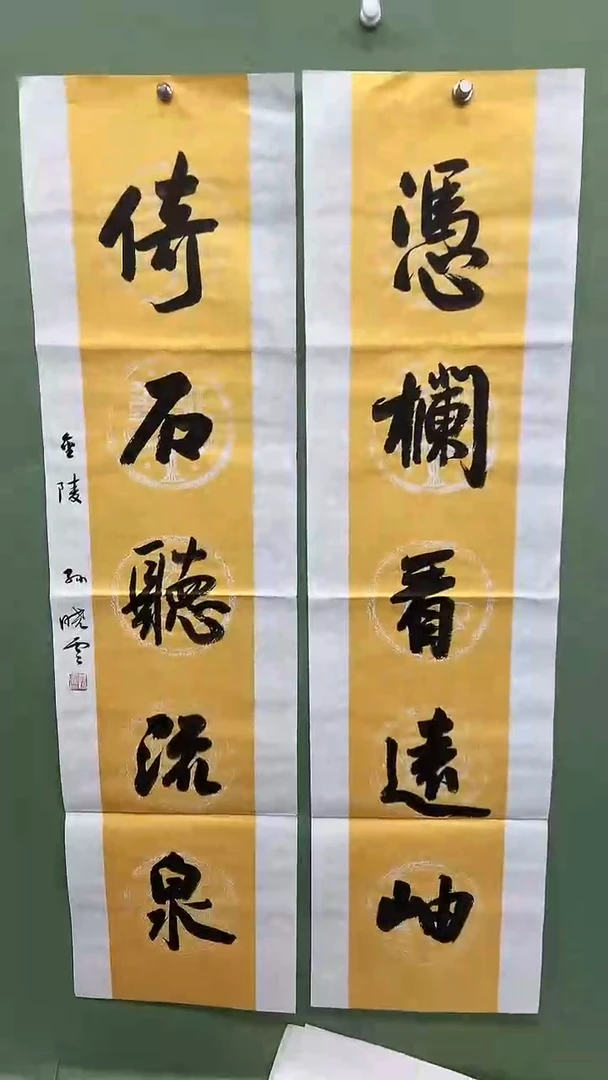 憑欄看遠岫
倚石聽流泉
金陵 孫曉雲